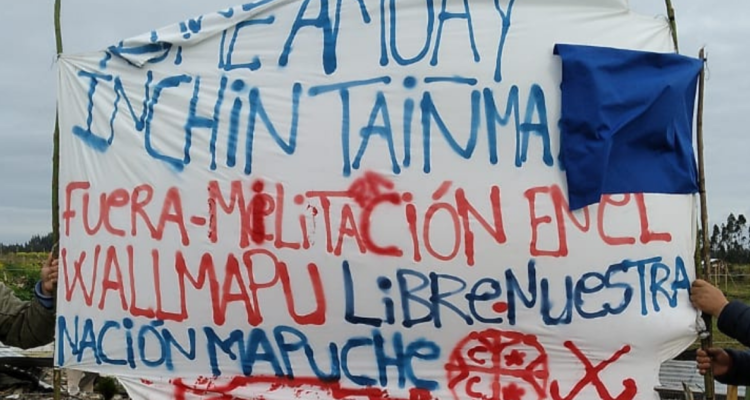 INCHIN TAIÑ MA
FUERA-MiLiTACIÓN EN EL
WALLMAPU LiBRE.NUESTRA
NACIÓN MAPUCHE